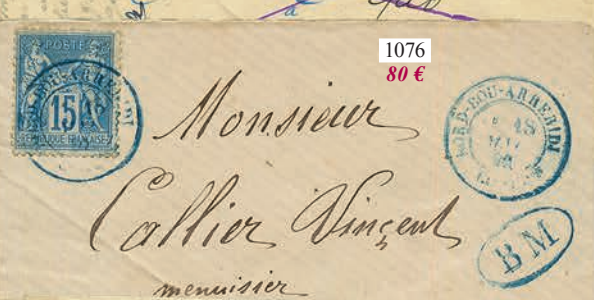 POSTE
15
REPUBLIQUE FRANÇAISE
1076
80 €
BORDJ-BOU-ARRERIDJ
18
Monsieur
Callier Vinçent
menuisier
BM